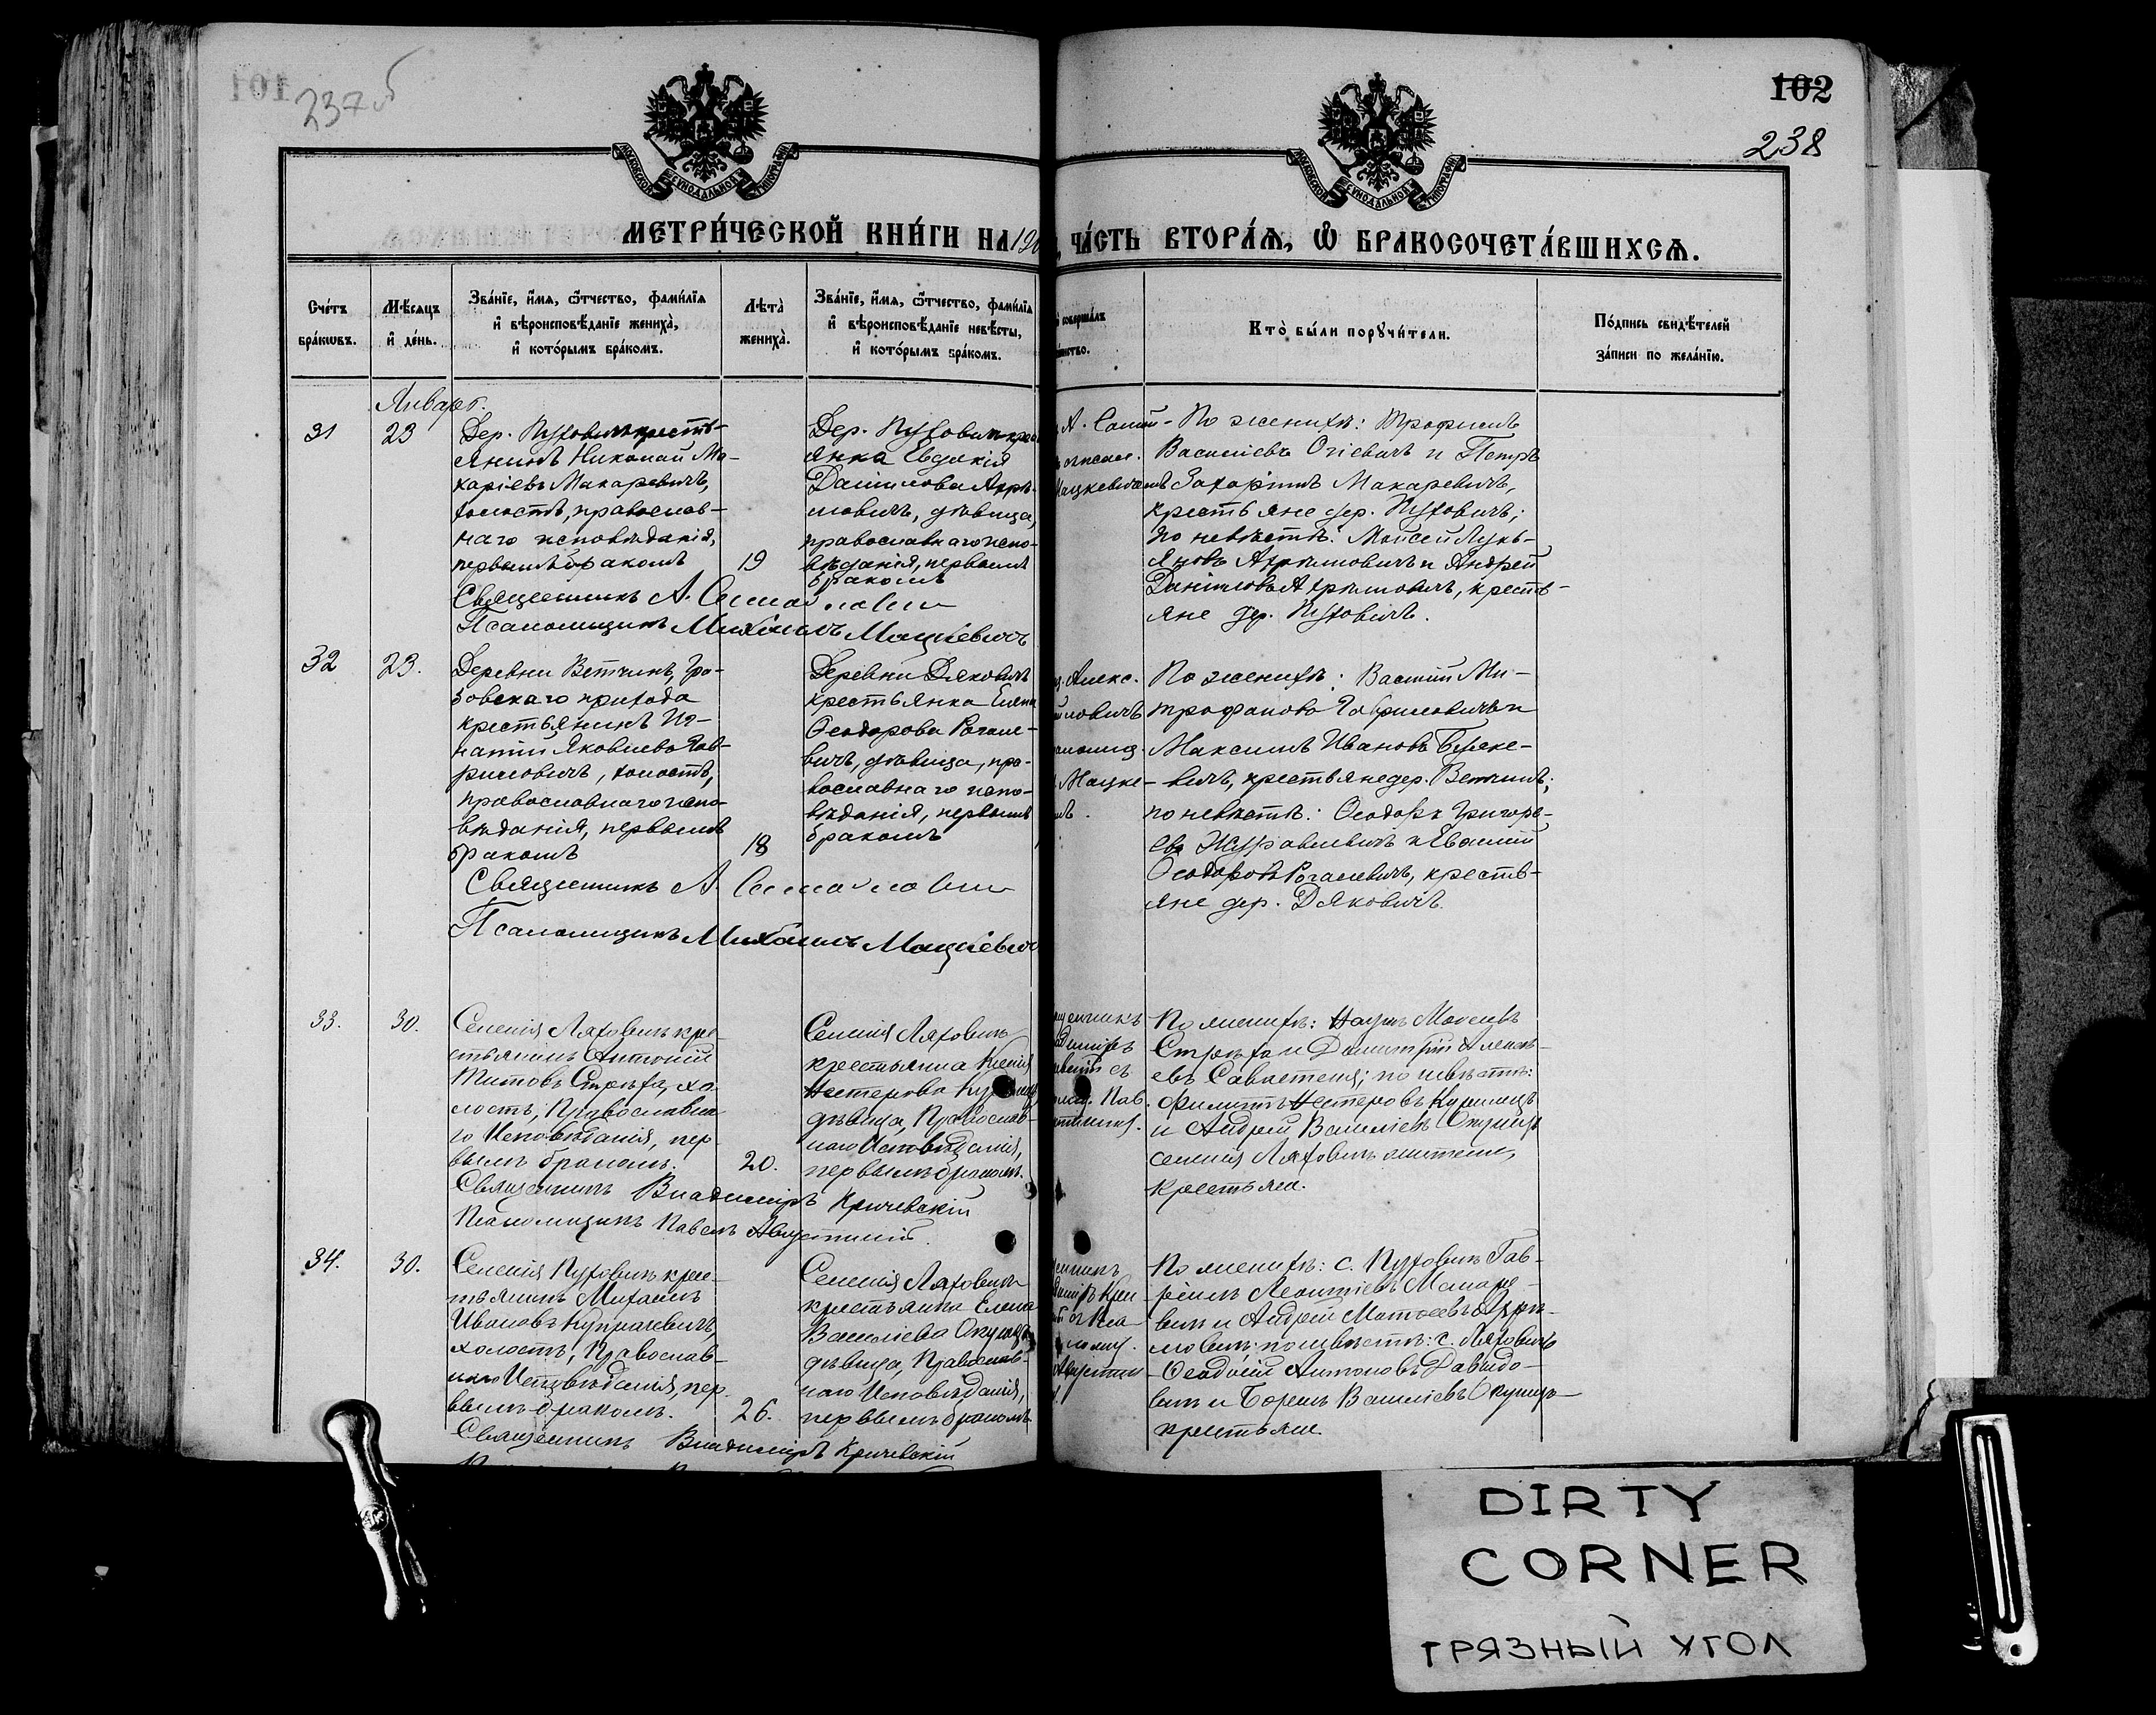 237об
102
238
МОСКОВСКОЙ СѴНОДАЛЬНОЙ ТИПОГРАФІИ
МОСКОВСКОЙ СѴНОДАЛЬНОЙ ТИПОГРАФІИ
МЕТРИ́ЧЕСКОЙ КНИ́ГИ НА 190
ЧА́СТЬ ВТОРА́Ѧ, Ѽ БРАКОСОЧЕТА́ВШИХСѦ.
Сче́тъ бра́кѡвъ.
Мѣ́сѧцъ и҆ де́нь.
Зва́нїе, и҆́мѧ, ѻ҆́тчество, фамѝлїѧ и҆ вѣроисповѣ́данїе жениха̀, и҆ кото́рымъ бра́комъ.
Лѣта̀ жениха̀.
Зва́нїе, и҆́мѧ, ѻ҆́тчество, фамѝлїѧ и҆ вѣроисповѣ́данїе невѣ́сты, и҆ кото́рымъ бра́комъ.
совершалъ
Кто̀ бы́ли порꙋчи́тели.
По́дпись свидѣ́телей за́писи по жела́нїю.
Январь.
31
23
Дер. Пуховичъ кресть-
янинъ Николай Ма-
каріевъ Макаревичъ,
холостъ, православ-
наго исповѣданія,
первымъ бракомъ
19
Дер. Пуховичъ кре
янка Евдокія
Даніилова Ахрѣ-
мовичъ, дѣвица,
православнаго испо-
вѣданія, первымъ
бракомъ
По женихѣ: Трофимъ
Василіевъ Огіевичъ и Петръ
Захаріинъ Макаревичъ,
крестьяне дер. Пуховичъ;
по невѣстѣ: Моисей Лукь-
яновъ Ахрѣмовичъ и Андрей
Даніиловъ Ахрѣмовичъ, кресть-
яне дер. Пуховичъ.
Священникъ А.
Псаломщикъ Михаилъ Мацкевичъ
32
23.
Деревни Ветчинъ, Гро-
зовскаго прихода
крестьянинъ Иг-
натій Яковлевъ Гав-
риловичъ, холостъ,
православнаго испо-
вѣданія, первымъ
бракомъ
18
Деревни Дяковичъ
крестьянка Елена
Ѳеодорова Рогале-
вичъ, дѣвица, пра-
вославнаго испо-
вѣданія, первымъ
бракомъ
По женихѣ: Василій Ми-
трофановъ Гавриловичъ и
Максимъ Ивановъ
вичъ, крестьяне дер. Ветчинъ;
по невѣстѣ: Ѳеодоръ Григорь-
евъ Журавлевичъ и Евсилій
Ѳеодоровъ Рогалевичъ, кресть-
яне дер. Дяковичъ.
Священникъ А.
Псаломщикъ Михаилъ Мацкевичъ
33.
30.
Селенія Ляховичъ кре-
стьянинъ Антоній
Титовъ Стрѣха, хо-
лостъ, Православна-
го Исповѣданія, пер-
вымъ бракомъ.
20.
Селенія Ляховичъ
крестьянка Ксенія
Нестерова
дѣвица, Православ-
наго Исповѣданія,
первымъ бракомъ.
По женихѣ: Наумъ Моисеевъ
Стрѣха и Димитрій Алексѣ-
евъ Савастеня; по невѣстѣ:
Филиппъ Нестеровъ Курилецъ
и Андрей Василіевъ Окунецъ
селенія Ляховичъ жители,
крестьяне.
Священникъ Владиміръ Кричевскій
Псаломщикъ Павелъ Августинскій.
34.
30.
Селенія Пуховичъ крес-
тьянинъ Михаилъ
Ивановъ Купрацевичъ,
холостъ, Православ-
наго Исповѣданія, пер-
вымъ бракомъ.
26.
Селенія Ляховичъ
крестьянка Елена
Василіева Окунецъ
дѣвица, Православ-
наго Исповѣданія,
первымъ бракомъ
По женихѣ: с. Пуховичъ Гав-
ріилъ Леонтіевъ Макаре-
вичъ и Андрей Матѳеевъ Ахрѣ-
мовичъ; по невѣстѣ: с. Ляховичъ
Ѳеодосій Антоновъ Давидо-
вичъ и Борисъ Василіевъ Окунецъ
крестьяне.
Священникъ Владиміръ Кричевскій
DIRTY
CORNER
ГРЯЗНЫЙ УГОЛ